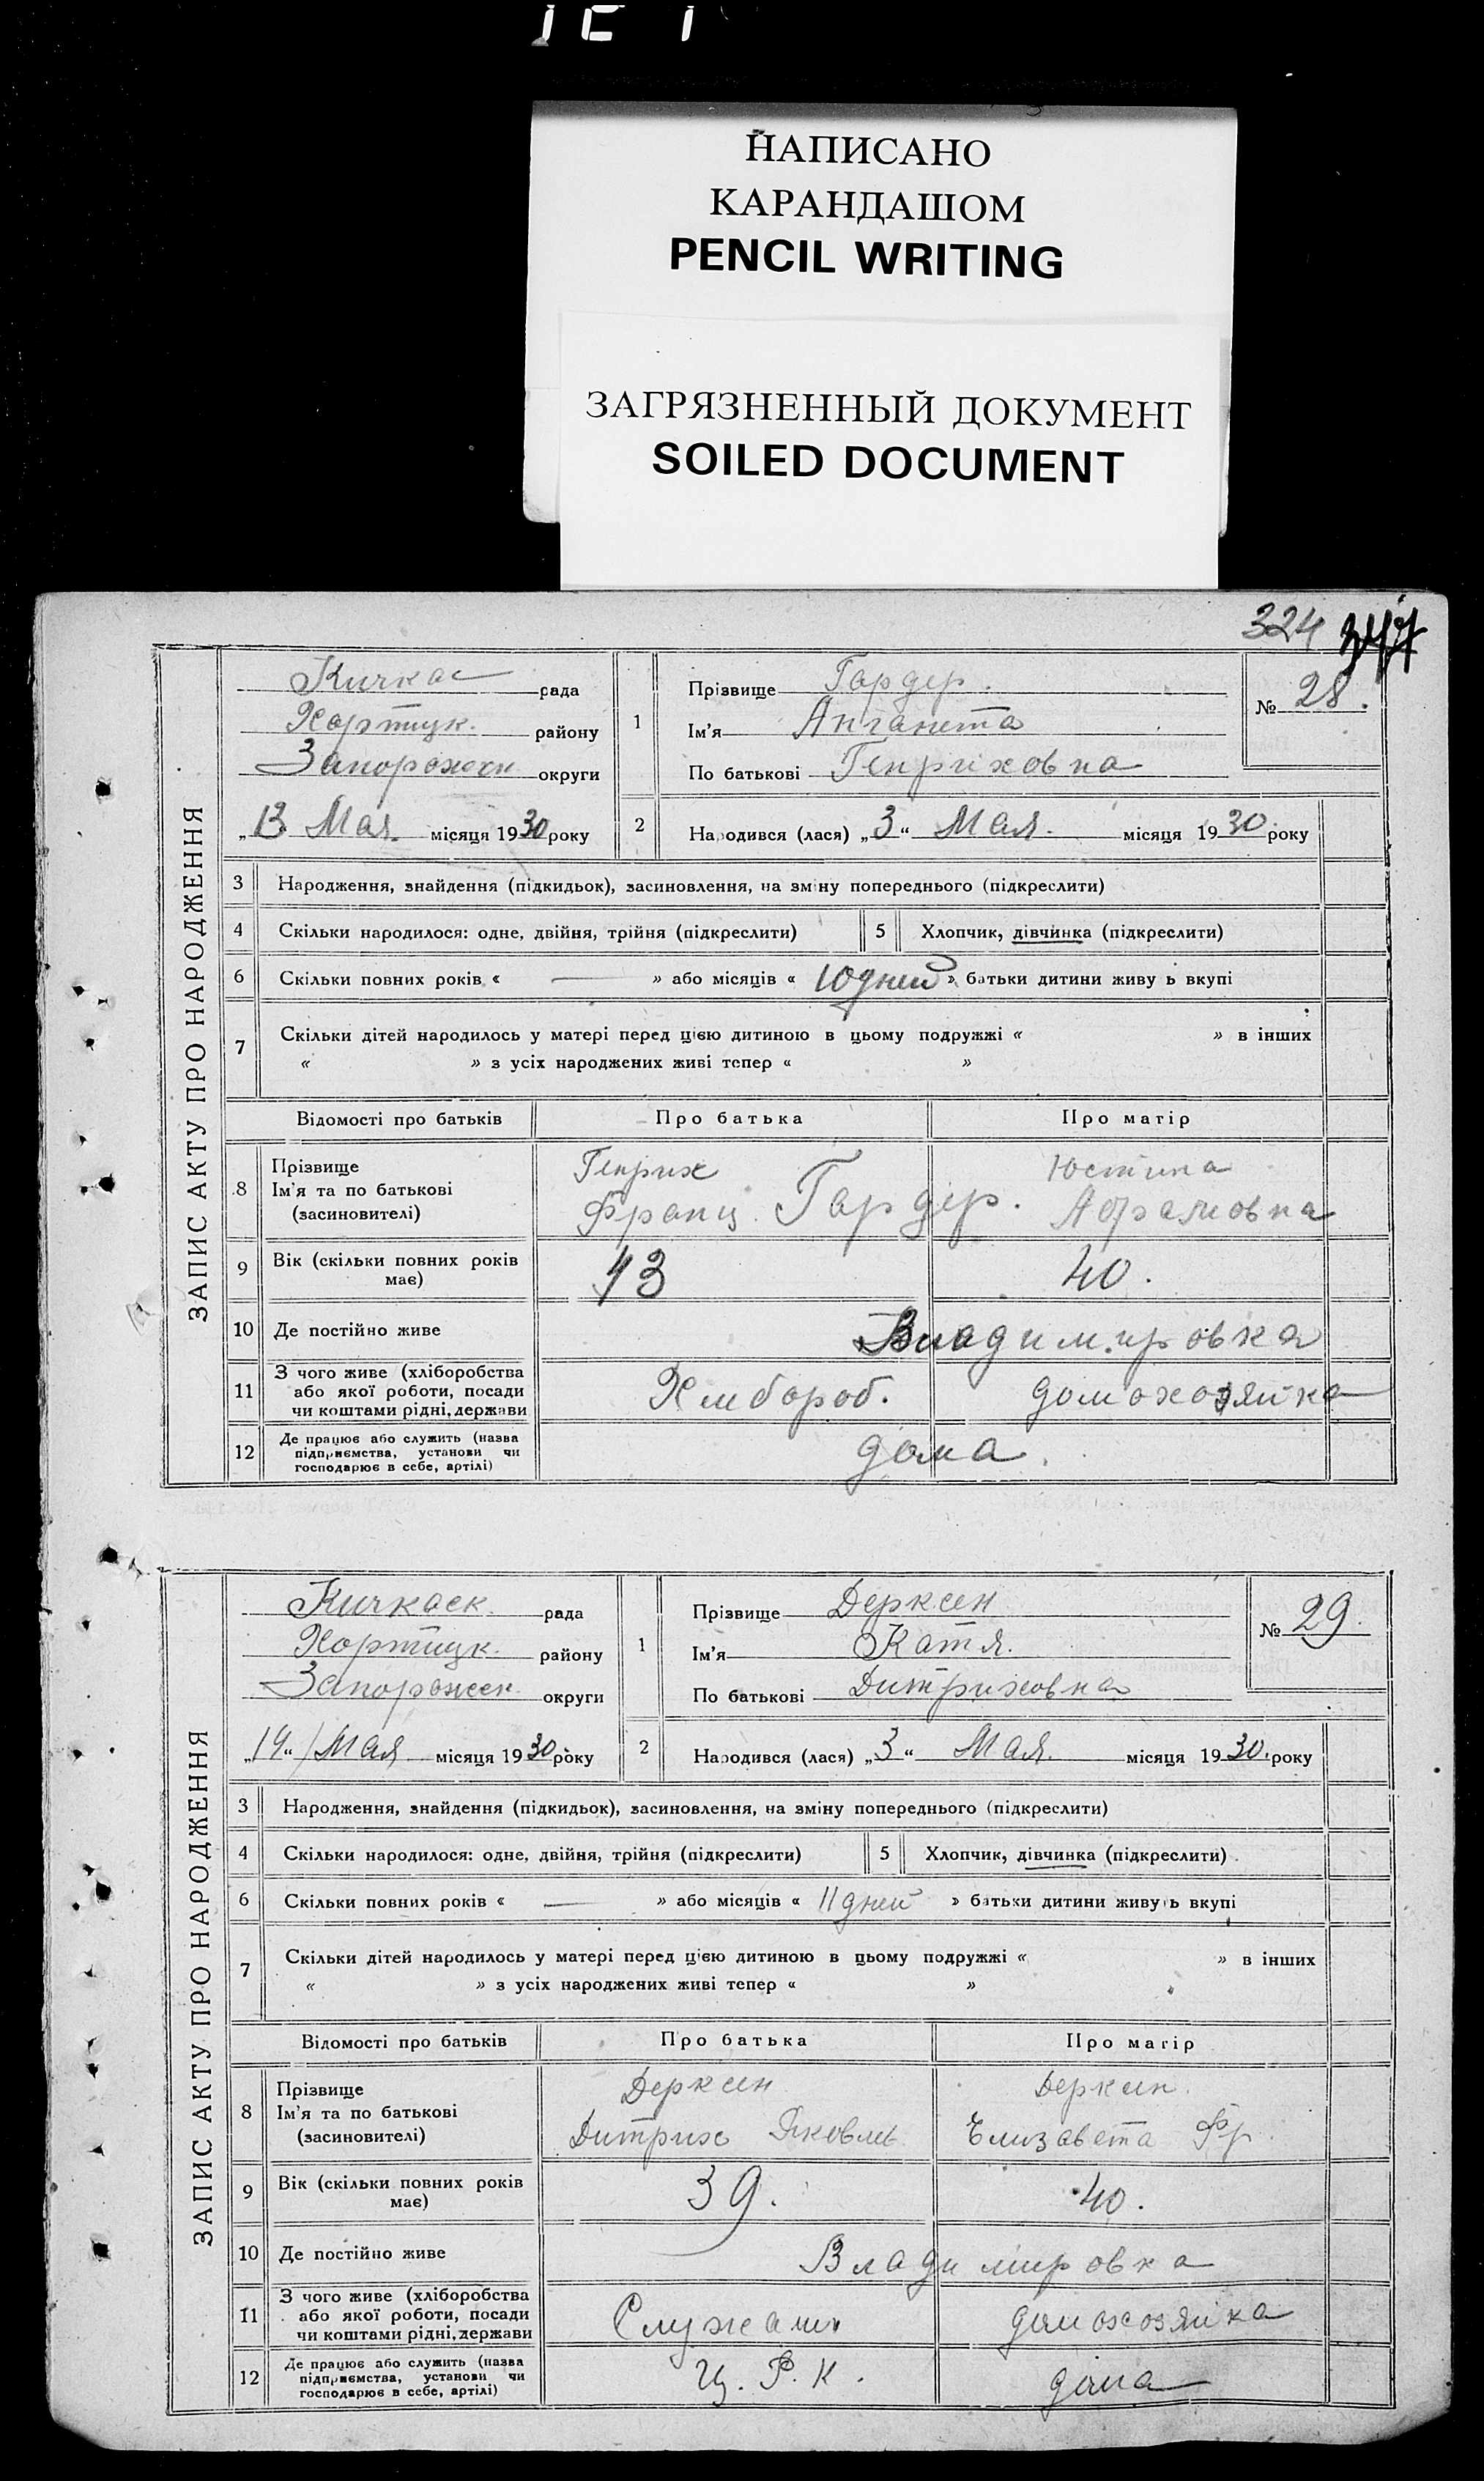 НАПИСАНО
КАРАНДАШОМ
PENCIL WRITING
ЗАГРЯЗНЕННЫЙ ДОКУМЕНТ
SOILED DOCUMENT
324
ЗАПИС АКТУ ПРО НАРОДЖЕННЯ
Кичкас рада
Хортицк. району
Запорожск округи
„13 Мая. місяця 1930 року
1 Прізвище Гардер.
Ім'я Анганета
По батькові Генриховна
№ 28.
2 Народився (лася) „3“ Мая. місяця 1930 року
3 Народження, знайдення (підкидьок), засиновлення, на зміну попереднього (підкреслити)
4 Скільки народилося: одне, двійня, трійня (підкреслити) 5 Хлопчик, дівчинка (підкреслити)
6 Скільки повних років « — » або місяців « 10 дней » батьки дитини живу ь вкупі
7 Скільки дітей народилось у матері перед цією дитиною в цьому подружжі « » в інших
« » з усіх народжених живі тепер « »
Відомості про батьків Про батька Про матір
8 Прізвище
Ім'я та по батькові
(засиновителі)
Генрих
Франц. Гардер.
Юстина
Абрамовна
9 Вік (скільки повних років
має)
43 40.
10 Де постійно живе Владимировка
11 З чого живе (хліборобства
або якої роботи, посади
чи коштами рідні, держави
Хлибороб. домохозяйка
12 Де працює або служить (назва
підприємства, установи чи
господарює в себе, артілі)
дома.
ЗАПИС АКТУ ПРО НАРОДЖЕННЯ
Кичкаск. рада
Хортицк. району
Запорожск. округи
„14“ Мая місяця 1930 року
1 Прізвище Дерксен
Ім'я Катя.
По батькові Дитриховна
№ 29.
2 Народився (лася) „3“ Мая. місяця 1930. року
3 Народження, знайдення (підкидьок), засиновлення, на зміну попереднього (підкреслити)
4 Скільки народилося: одне, двійня, трійня (підкреслити) 5 Хлопчик, дівчинка (підкреслити)
6 Скільки повних років « — » або місяців « 11 дней » батьки дитини живу ь вкупі
7 Скільки дітей народилось у матері перед цією дитиною в цьому подружжі « » в інших
« » з усіх народжених живі тепер « »
Відомості про батьків Про батька Про матір
8 Прізвище
Ім'я та по батькові
(засиновителі)
Дерксен
Дитрих Яковлев
Дерксен.
Елизавета Фр.
9 Вік (скільки повних років
має)
39. 40.
10 Де постійно живе Владимировка
11 З чого живе (хліборобства
або якої роботи, посади
чи коштами рідні, держави
домохозяйка
12 Де працює або служить (назва
підприємства, установи чи
господарює в себе, артілі)
Ц. Р. К. дома